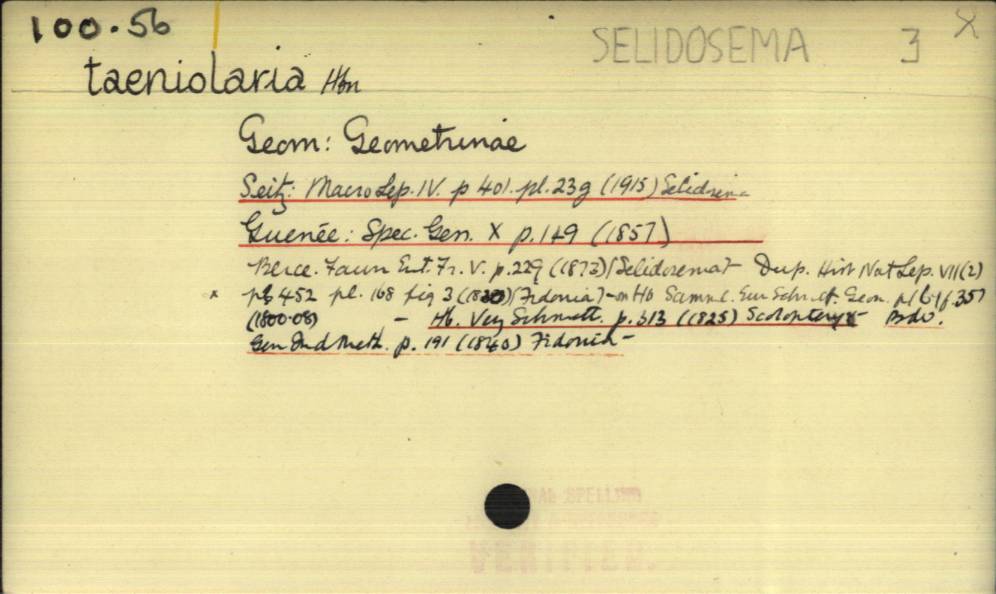 100.56
SELIDOSEMA 3 X
taeniolaria Hbn
Geom: Geometrinae
Seitz: Macro Lep. IV. p 401. pl. 23g (1915) Selidosema
Guenée: Spec. Gen. X p. 149 (1857)
Berce. Faun Ent. Fr. V. p. 229 (1873) (Selidosema) - Dup. Hist Nat Lep. VII(2)
x p 452 pl. 168 fig 3 (1830) (Fidonia) - Hb Samml. Eur Schmett. Geom. f. 357
(1800-08) - Hb. Verz Schmett. p. 313 (1825) Scolopteryx - Bdv.
Gen Ind Meth. p. 191 (1840) Fidonia -
SPELLING
VERIFIED.